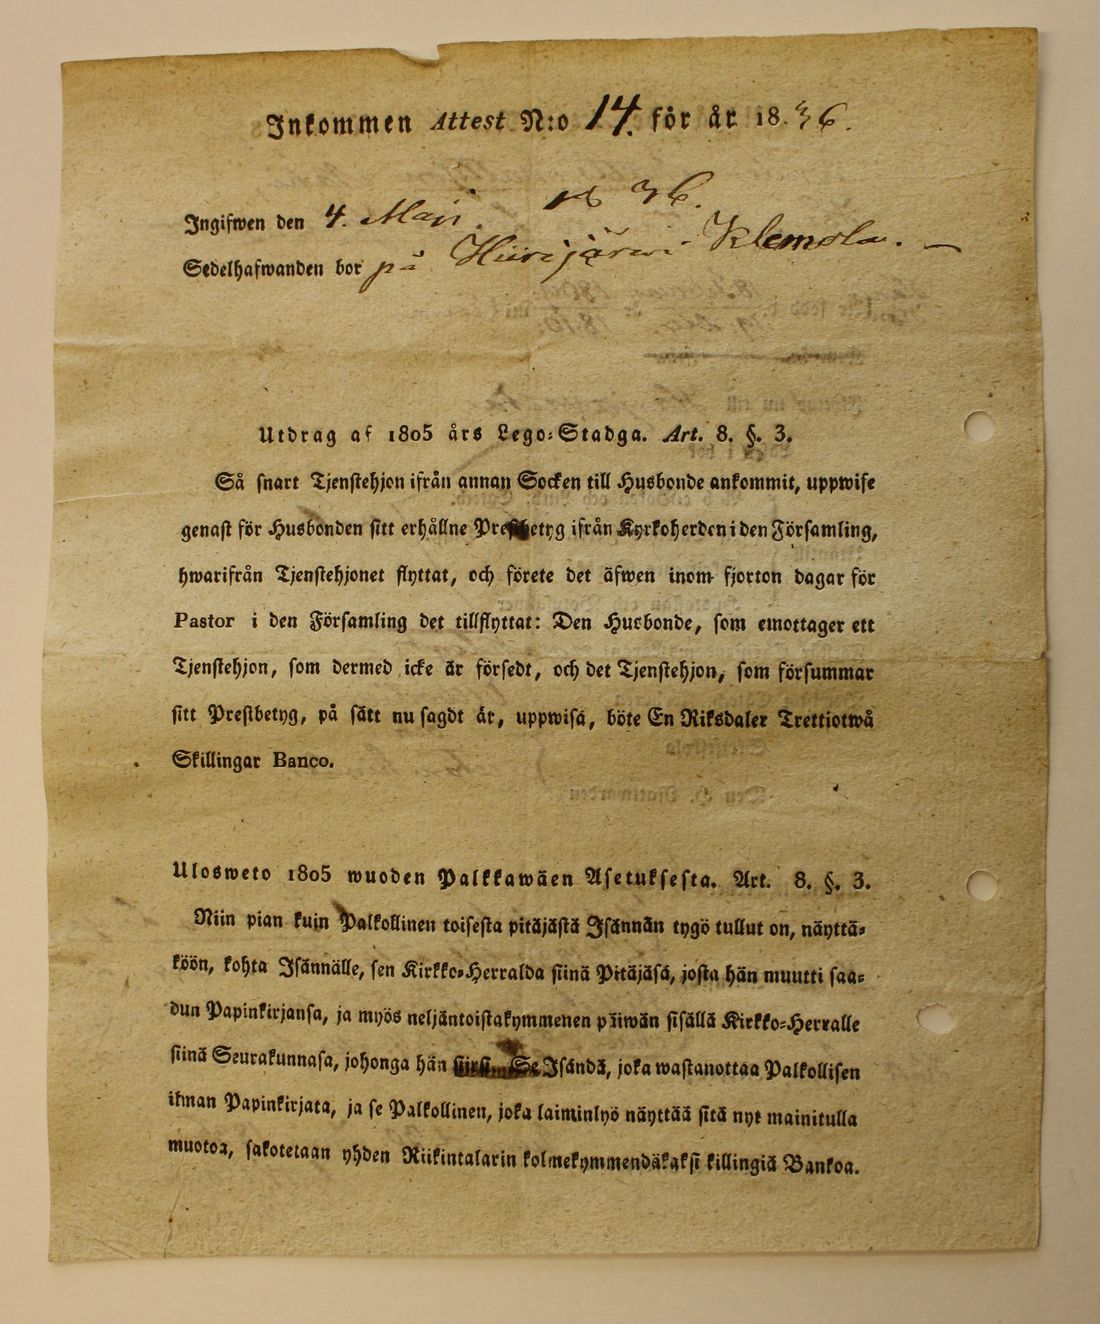 Inkommen Attest N:o 14. för år 18.36.
Ingifwen den 4. Maji 1836.
Sedelhafwanden bor på Hiirijärwi Klemola. —
Utdrag af 1805 års Lego-Stadga. Art. 8. §. 3.
Så snart Tjenstehjon ifrån annan Socken till Husbonde ankommit, uppwise
genast för Husbonden sitt erhållne Prestbetyg ifrån Kyrkoherden i den Församling,
hwarifrån Tjenstehjonet flyttat, och förete det äfwen inom fjorton dagar för
Pastor i den Församling det tillflyttat: Den Husbonde, som emottager ett
Tjenstehjon, som dermed icke är försedt, och det Tjenstehjon, som försummar
sitt Prestbetyg, på sätt nu sagdt är, uppwisa, böte En Riksdaler Trettiotwå
Skillingar Banco.
Ulosweto 1805 wuoden Palkkawäen Asetuksesta. Art. 8. §. 3.
Niin pian kuin Palkollinen toisesta pitäjästä Isännän tygö tullut on, näyttä-
köön, kohta Isännälle, sen Kirkko-Herralda siinä Pitäjäsä, josta hän muutti saa-
dun Papinkirjansa, ja myös neljäntoistakymmenen päiwän sisällä Kirkko-Herralle
siinä Seurakunnasa, johonga hän siirsi. Se Isändä, joka wastanottaa Palkollisen
ilman Papinkirjata, ja se Palkollinen, joka laiminlyö näyttää sitä nyt mainitulla
muotoa, sakotetaan yhden Riikintalarin kolmekymmendäkaksi killingiä Bankoa.